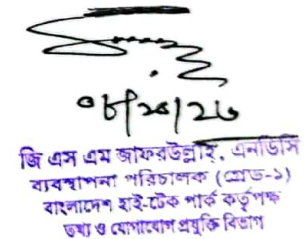 ০৮/১০/২৩
জি এস এম জাফরউল্লাহ, এনডিসি
ব্যবস্থাপনা পরিচালক (গ্রেড-১)
বাংলাদেশ হাই-টেক পার্ক কর্তৃপক্ষ
তথ্য ও যোগাযোগ প্রযুক্তি বিভাগ